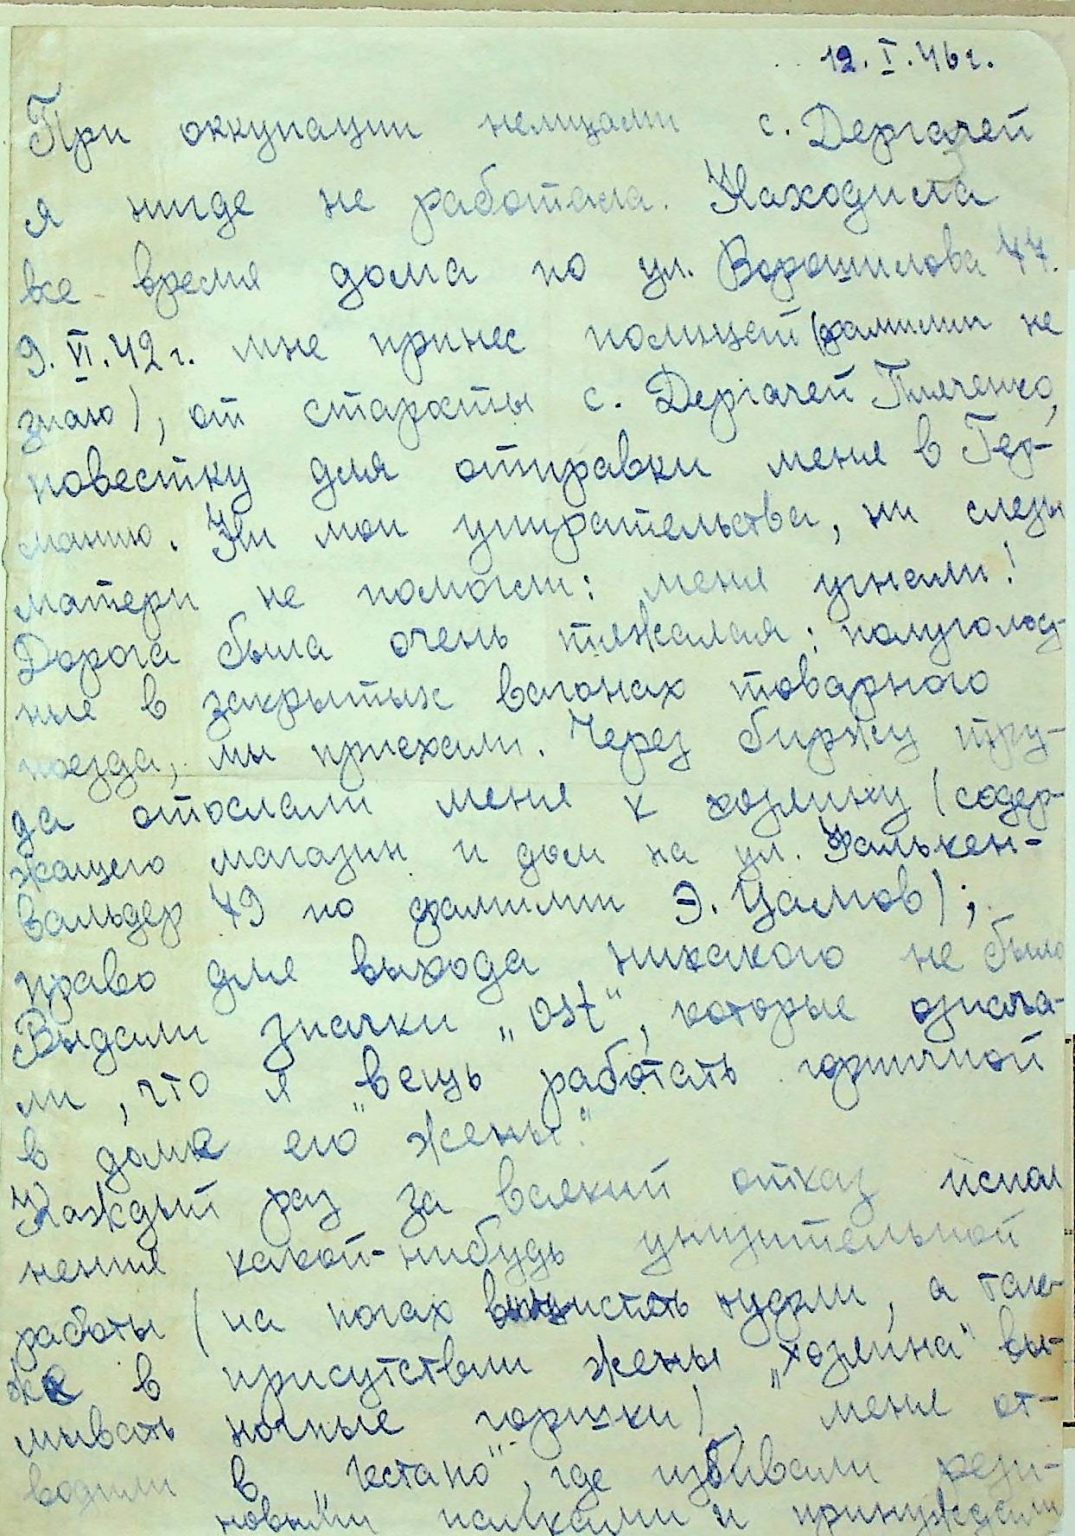 12. I. 46 г.
При оккупации немцами с. Дергачей
я нигде не работала. Находила
все время дома по ул. Ворошилова 47.
9. VI. 42 г. мне принес полицай (фамилии не
знаю), от старосты с. Дергачей Ткаченко,
повестку для отправки меня в Гер-
манию. Ни мои упирательства, ни слезы
матери не помогли: меня угнали!
Дорога была очень тяжалая: полуголод-
ные в закрытых вагонах товарного
поезда, мы приехали. Через биржу тру-
да отослали меня к хозяину (содер-
жащего магазин и дом на ул. Фалькен-
вальдер 49 по фамилии Э. Цамов);
право для выхода никакого не было
Выдали значки „Ost“, которые означа-
ли, что я "вещь работать горничной
в доме его жены."
Каждый раз за всякий отказ испол
нения какой-нибудь унизительной
работы (на ногах вычистить туфли, а так-
же в присутствии жены „хозяина“ вы-
мывать ночные горшки), меня от-
водили в „гестапо“, где избивали рези-
новыми палками и принуждали